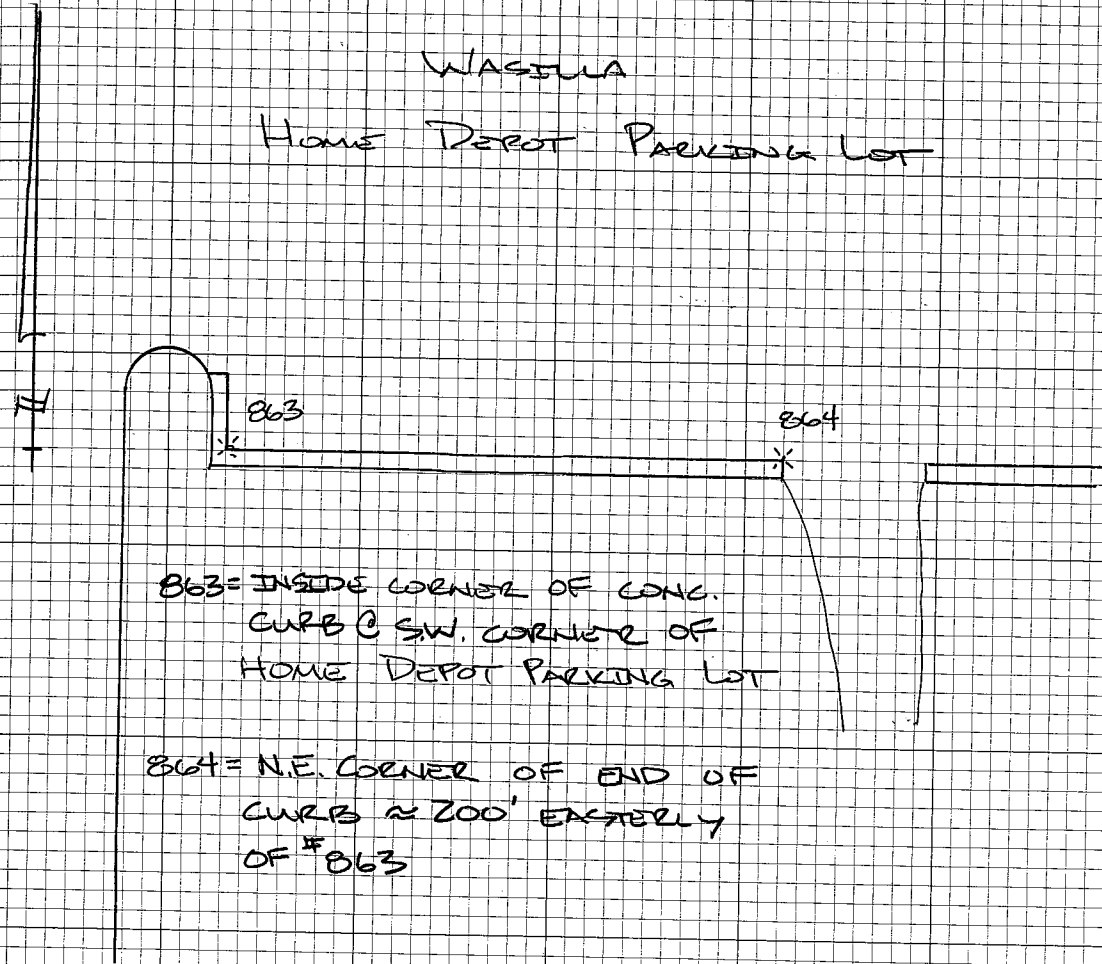 WASILLA
HOME DEPOT PARKING LOT
863
864
863= INSIDE CORNER OF CONC.
CURB @ S.W. CORNER OF
HOME DEPOT PARKING LOT
864= N.E. CORNER OF END OF
CURB ≈ 200' EASTERLY
OF #863